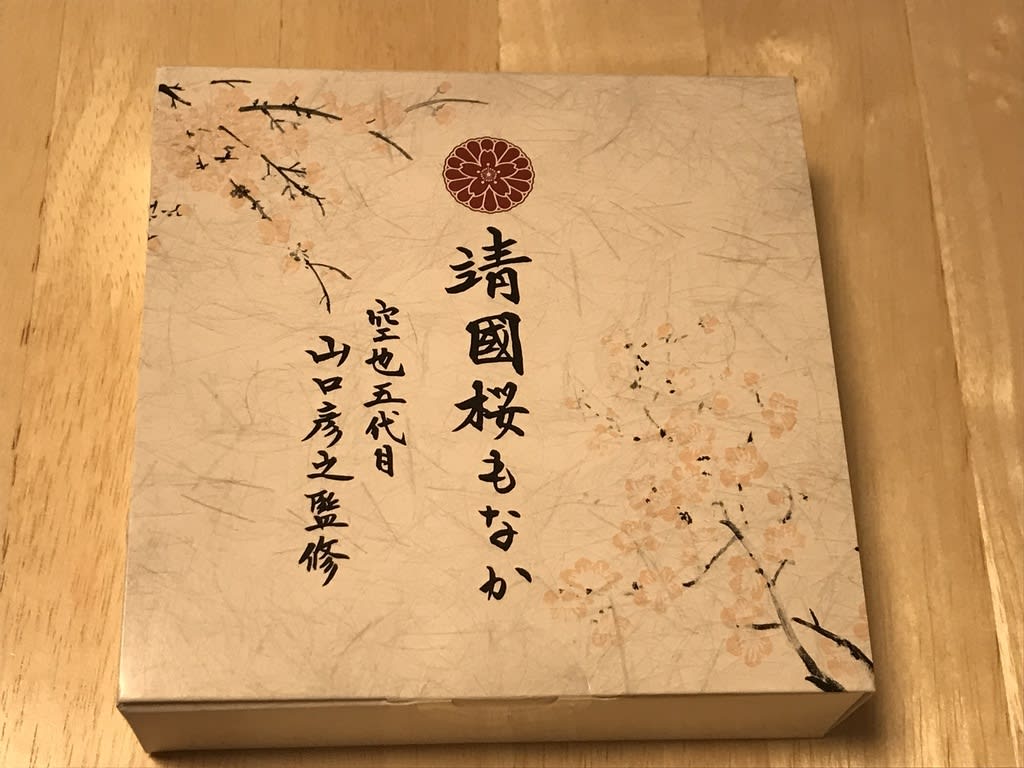 靖國桜もなか
空也五代目
山口彦之監修